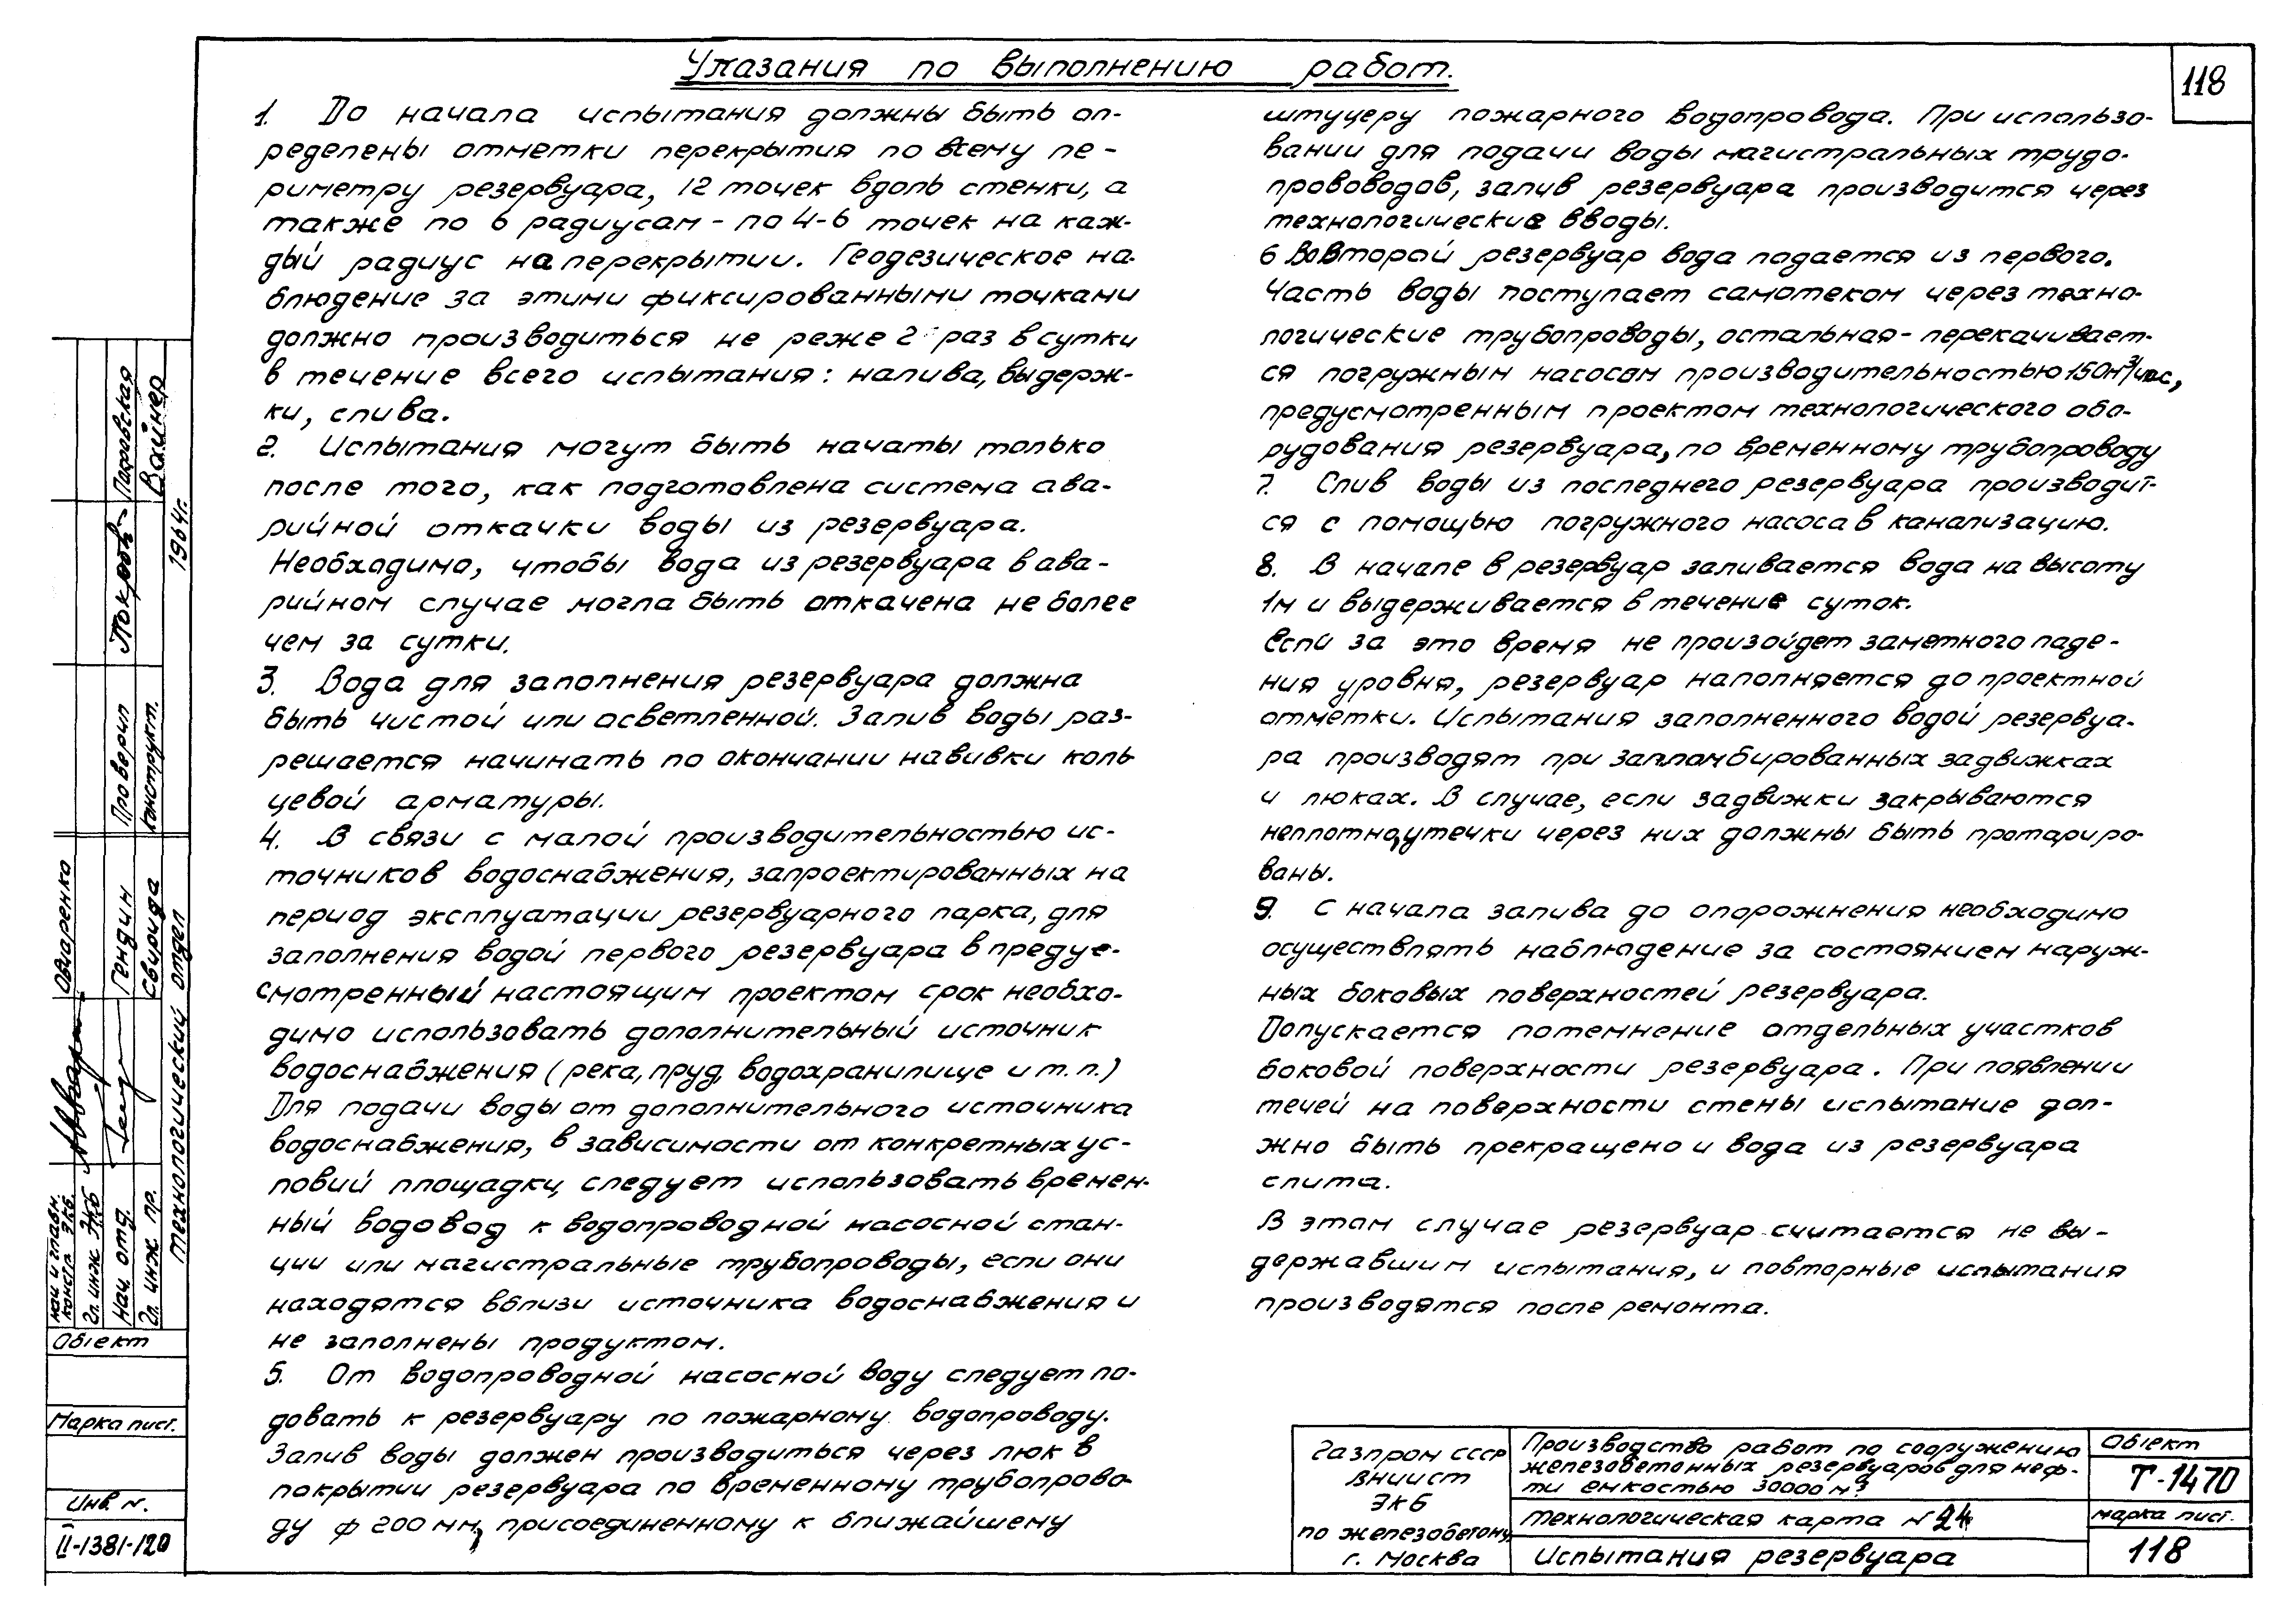 Указания по выполнению работ.
118
1. До начала испытания должны быть оп-
ределены отметки перекрытия по всему пе-
риметру резервуара, 12 точек вдоль стенки, а
также по 6 радиусам - по 4-6 точек на каж-
дый радиус на перекрытии. Геодезическое на-
блюдение за этими фиксированными точками
должно производиться не реже 2 раз в сутки
в течение всего испытания: налива, выдерж-
ки, слива.
2. Испытания могут быть начаты только
после того, как подготовлена система ава-
рийной откачки воды из резервуара.
Необходимо, чтобы вода из резервуара в ава-
рийном случае могла быть откачена не более
чем за сутки.
3. Вода для заполнения резервуара должна
быть чистой или осветленной. Залив воды раз-
решается начинать по окончании навивки коль
цевой арматуры.
4. В связи с малой производительностью ис-
точников водоснабжения, запроектированных на
период эксплуатации резервуарного парка, для
заполнения водой первого резервуара в преду-
смотренный настоящим проектом срок необхо-
димо использовать дополнительный источник
водоснабжения (река, пруд, водохранилище и т.п.)
Для подачи воды от дополнительного источника
водоснабжения, в зависимости от конкретных ус-
ловий площадки, следует использовать времен-
ный водовод к водопроводной насосной стан-
ции или магистральные трубопроводы, если они
находятся вблизи источника водоснабжения и
не заполнены продуктом.
5. От водопроводной насосной воду следует по-
давать к резервуару по пожарному водопроводу.
Залив воды должен производиться через люк в
покрытии резервуара по временному трубопрово-
ду ф 200 мм, присоединенному к ближайшему
штуцеру пожарного водопровода. При использо-
вании для подачи воды магистральных трудо-
прововодов, залив резервуара производится через
технологические вводы.
6 Во второй резервуар вода подается из первого.
Часть воды поступает самотеком через техно-
логические трубопроводы, остальная - перекачивает-
ся погружным насосом производительностью 150м³/час,
предусмотренным проектом технологического обо-
рудования резервуара, по временному трубопроводу
7. Слив воды из последнего резервуара производит-
ся с помощью погружного насоса в канализацию.
8. В начале в резервуар заливается вода на высоту
1м и выдерживается в течение суток.
Если за это время не произойдет заметного паде-
ния уровня, резервуар наполняется до проектной
отметки. Испытания заполненного водой резервуа-
ра производят при запломбированных задвижках
и люках. В случае, если задвижки закрываются
неплотно, утечки через них должны быть протариро-
ваны.
9. С начала залива до опорожнения необходимо
осуществлять наблюдение за состоянием наруж-
ных боковых поверхностей резервуара.
Допускается потемнение отдельных участков
боковой поверхности резервуара. При появлении
течей на поверхности стены испытание дол-
жно быть прекращено и вода из резервуара
слита.
В этом случае резервуар считается не вы-
державшим испытания, и повторные испытания
производятся после ремонта.
Газпром СССР
ВНИИСТ
ЭКБ
по железобетону
г. Москва
Производство работ по сооружению
железобетонных резервуаров для неф-
ти емкостью 30000 м³
Технологическая карта № 24
Испытания резервуара
Объект
Т-1470
марка лист.
118
Нач и главн.
констр ЭКБ.
Гл. инж ЭКБ
Нач. отд.
Гл. инж. пр.
Овчаренко
Гендин
Свирида
Технологический отдел
Проверил
Конструкт.
Покровская
Вайнер
1964г.
Объект
Марка лист.
Инв. N.
II-1381-120